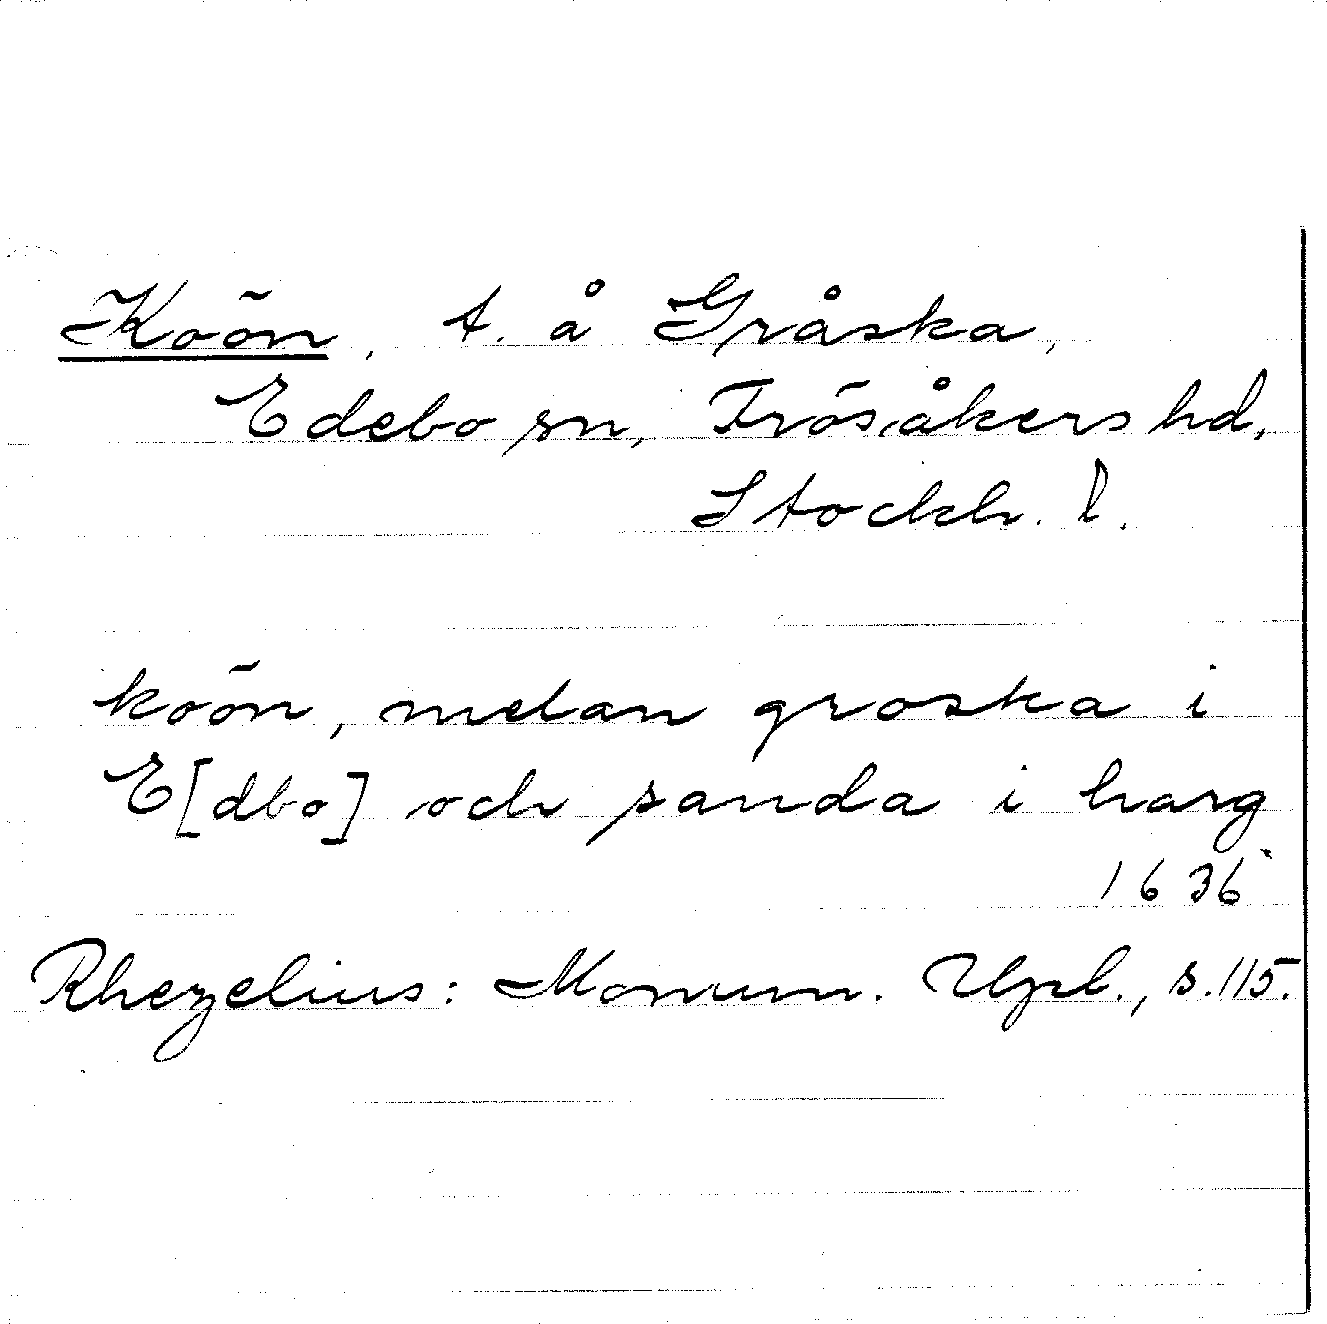 Koön, t. å Gråska,
Edebo sn, Frösåkers hd,
Stockh. l.
koön, melan groska i
E[dbo] och sanda i harg
1636
Rhezelius: Monum. Upl., s.115.